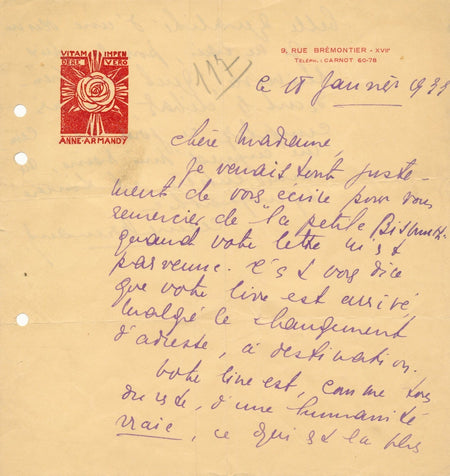 VITAM IMPEN
DERE VERO
ANNE·ARMANDY
9, RUE BRÉMONTIER - XVIIᵉ
TÉLÉPH. : CARNOT 60-78
117
le 18 Janvier 1935
Chère Madame,
Je venais tout juste-
ment de vous écrire pour vous
remercier de "la petite
quand votre lettre m'est
parvenue. C'est vous dire
que votre livre est arrivé,
malgré le changement
d'adresse, à destination.
Votre livre est, comme tous
du reste, d'une humanité
vraie, ce qui est la plus